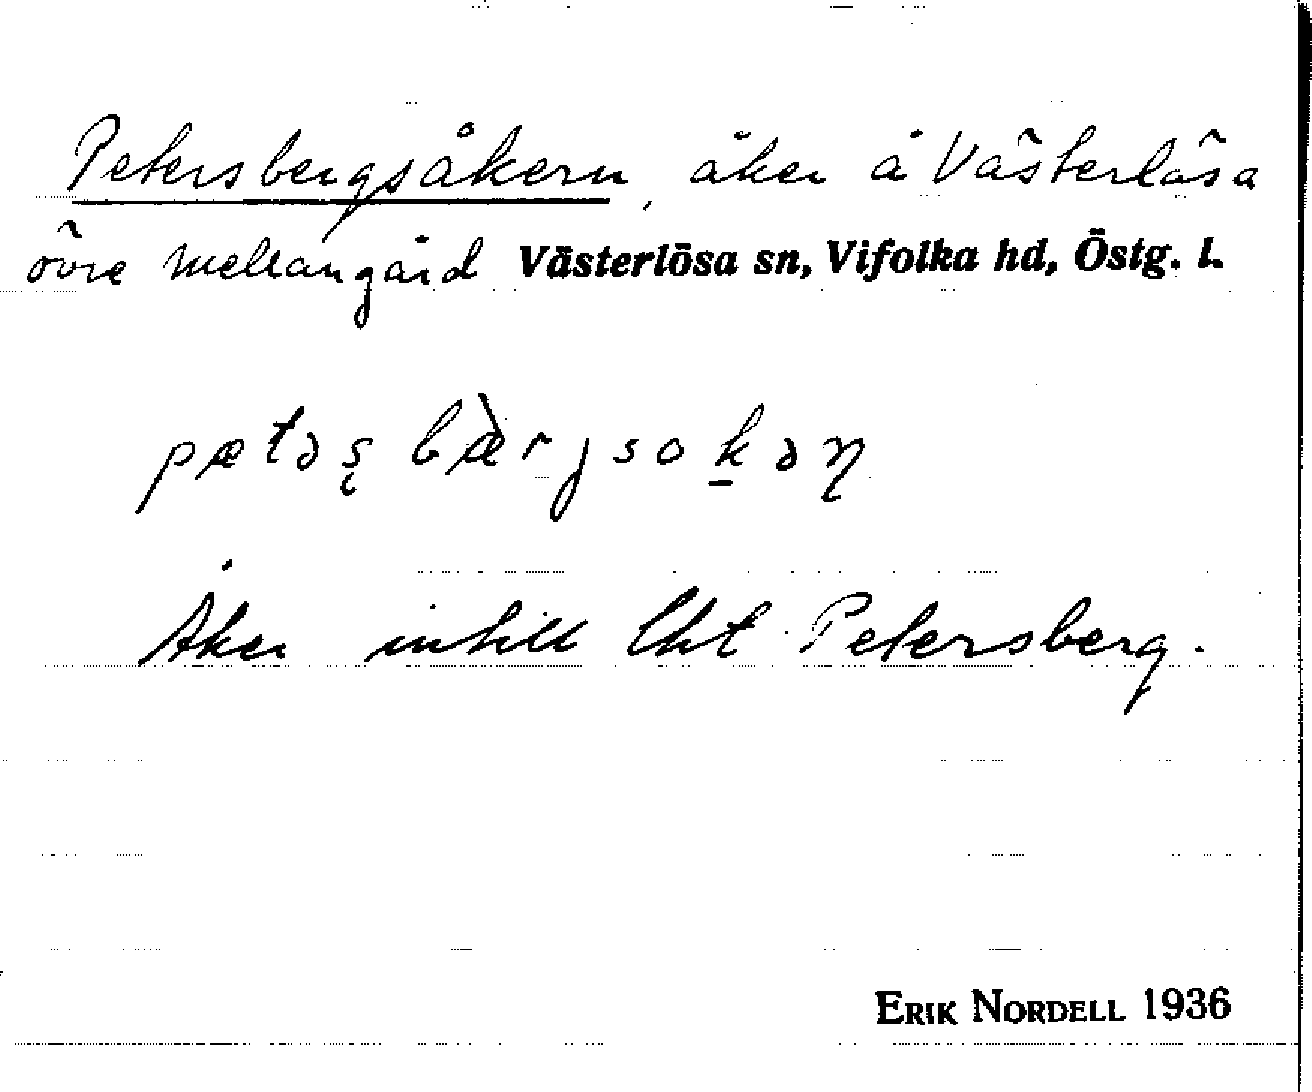 Petersbergsåkern, åker å Västerlösa
övre mellangård Västerlösa sn, Vifolka hd, Östg. l.
pætəʂbæ̀rjsoḵəɳ
Åker intill lht Petersberg.
ERIK NORDELL 1936